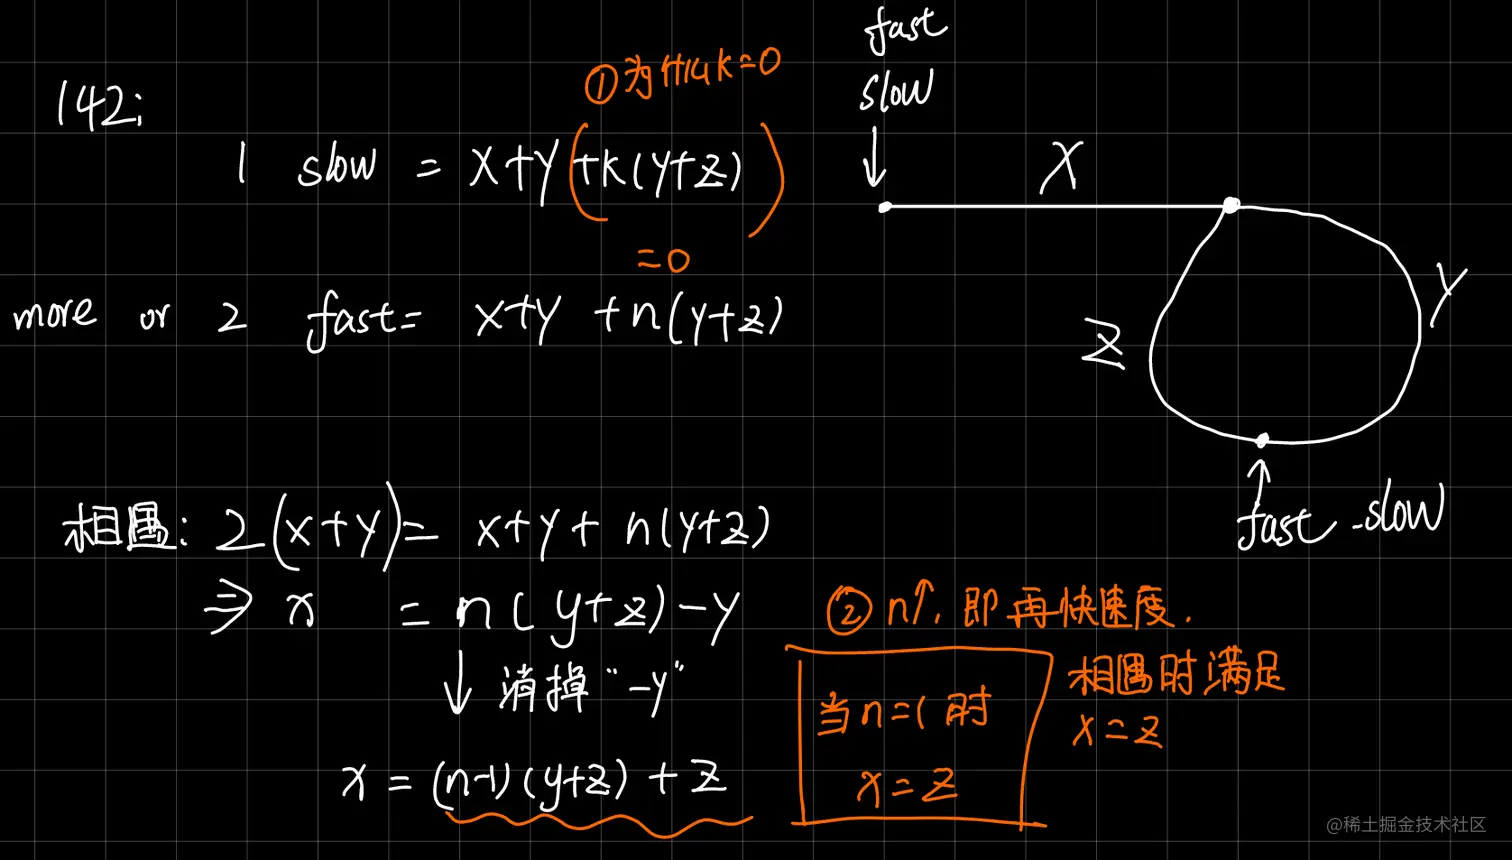 142:
①为什么k=0
1 slow = x+y(+k(y+z))
=0
more or 2 fast= x+y +n(y+z)
fast
slow
X
Y
Z
fast -slow
相遇: 2(x+y)= x+y+ n(y+z)
⇒ x = n(y+z)-y
↓ 消掉“-y”
x = (n-1)(y+z)+z
②n↑,即再快速度.
相遇时满足
x=z
当n=1时
x=z
@稀土掘金技术社区